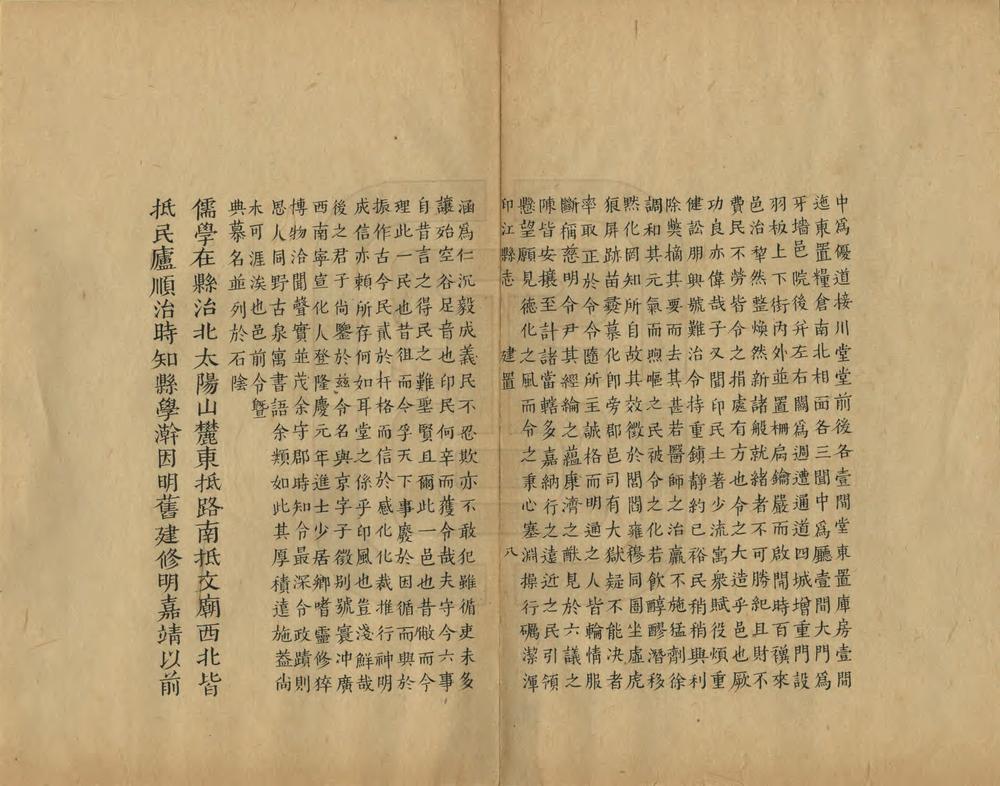 中爲優道接川堂堂前後各壹間堂東置庫房壹間
迤東置糧倉南北相面各三間中爲廳壹間大門爲
牙墻邑院後幷左右闢爲週遭通道四城增重門設
羽板上下街內外並置柵扄鑰嚴而啟閉時百穫來
邑治犂然整煥然新諸般就緒者不可勝紀且財不
費民不勞皆令之捐處有方也令之大造乎邑也厥
功良亦偉哉子又聞印民土著少流寓衆賦役煩重
健訟朋興號難治令持重鎮靜約已裕民稍稍興利
除獘摘其要而去其甚若醫師之治羸不施猛劑徐
調和其元氣而喣嘔之民被令之化若飲醇醪潛移
黙化罔知所自故其效徵於閭閻雍穆同圄坐虛虎
狼屏跡苗彝慕化卽旁邑司有大獄疑不能决者
率取正於令令隨所至誠格而明通之人皆輸情服
斷稱慈明令尹其經綸之蘊康濟之猷見於六議之
陳皆安攘至計諸當轄多嘉納行之遠近之民引領
懸望願見德化之風而令之秉心塞淵操行礪潔渾
印江縣志 建置 八
涵爲仁沉毅成義民不忍欺亦不敢犯雖循吏未多
讓殆空谷足音也印民何辛而獲令哉夫守令六事
自昔言之得民之難聖賢且爾此一邑也昔僘而今
理此一民也昔徂而令孚天下事廢於因循而興於
振作古今民貳於扞格而信於感化化裁推行神明
成信亦頼所存何如耳堂之係乎印風也豈淺鮮哉
後之君子尚鑒於兹令名與京字子徵别號寰冲廣
西南寧宣化人登隆慶元年進士少居鄉嗜靈修猝
博物洽聞聲實並茂余守郡時知令最深合政蹟則
思人同野古泉寓書語余類如此其厚積遠施葢尚
木可涯涘也邑前令曁
典慕名並列於石陰
儒學在縣治北太陽山麓東抵路南抵文廟西北皆
抵民廬順治時知縣學澣因明舊建修明嘉靖以前